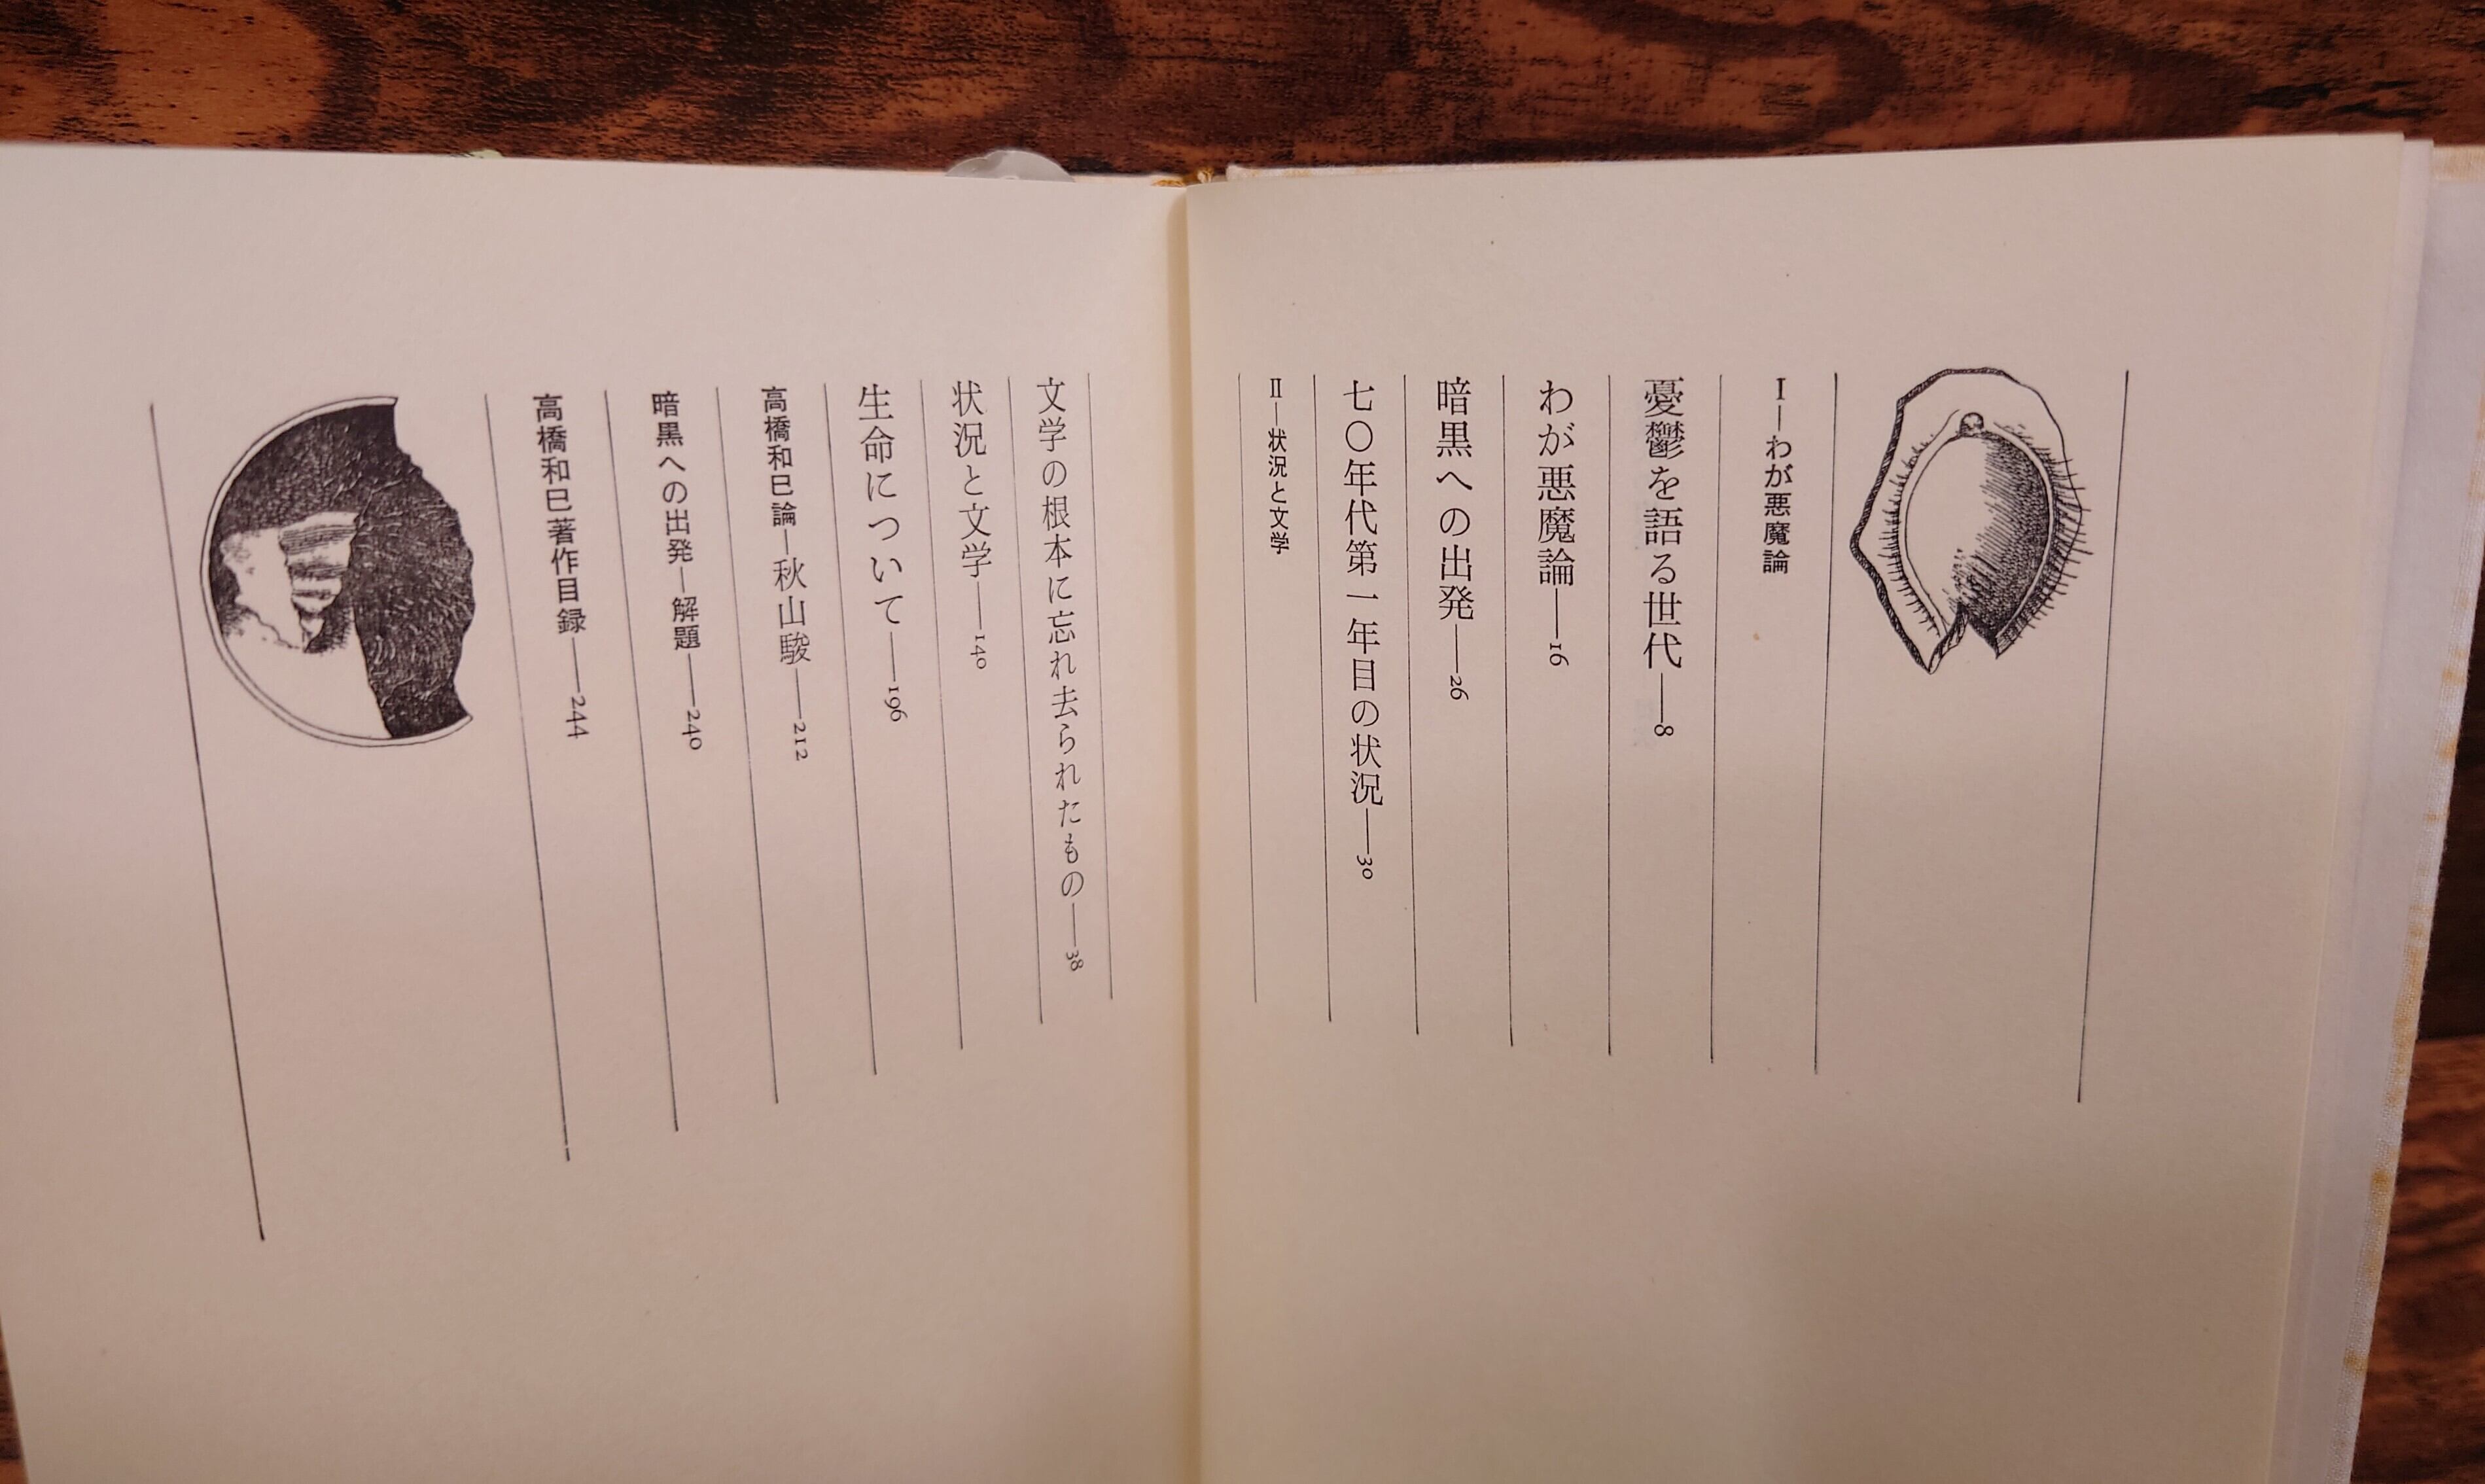 I―わが悪魔論
憂鬱を語る世代――8
わが悪魔論――16
暗黒への出発――26
七〇年代第一年目の状況――30
II―状況と文学
文学の根本に忘れ去られたもの――38
状況と文学――140
生命について――196
高橋和巳論―秋山駿――212
暗黒への出発―解題――240
高橋和巳著作目録――244